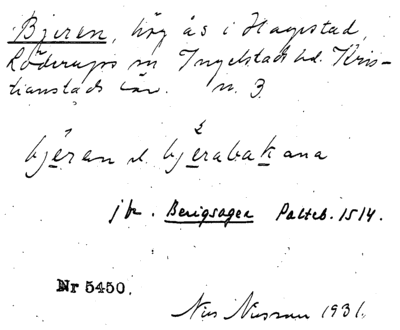 Bjeren, hög ås i Hagestad,
Löderups sn Ingelstads hd. Kris-
tianstads län. n. 3.
bjèran l. bjèrabakana
jfr. Berigsagen Palteb. 1514.
Nr 5450.
Nils Nilsson 1931.